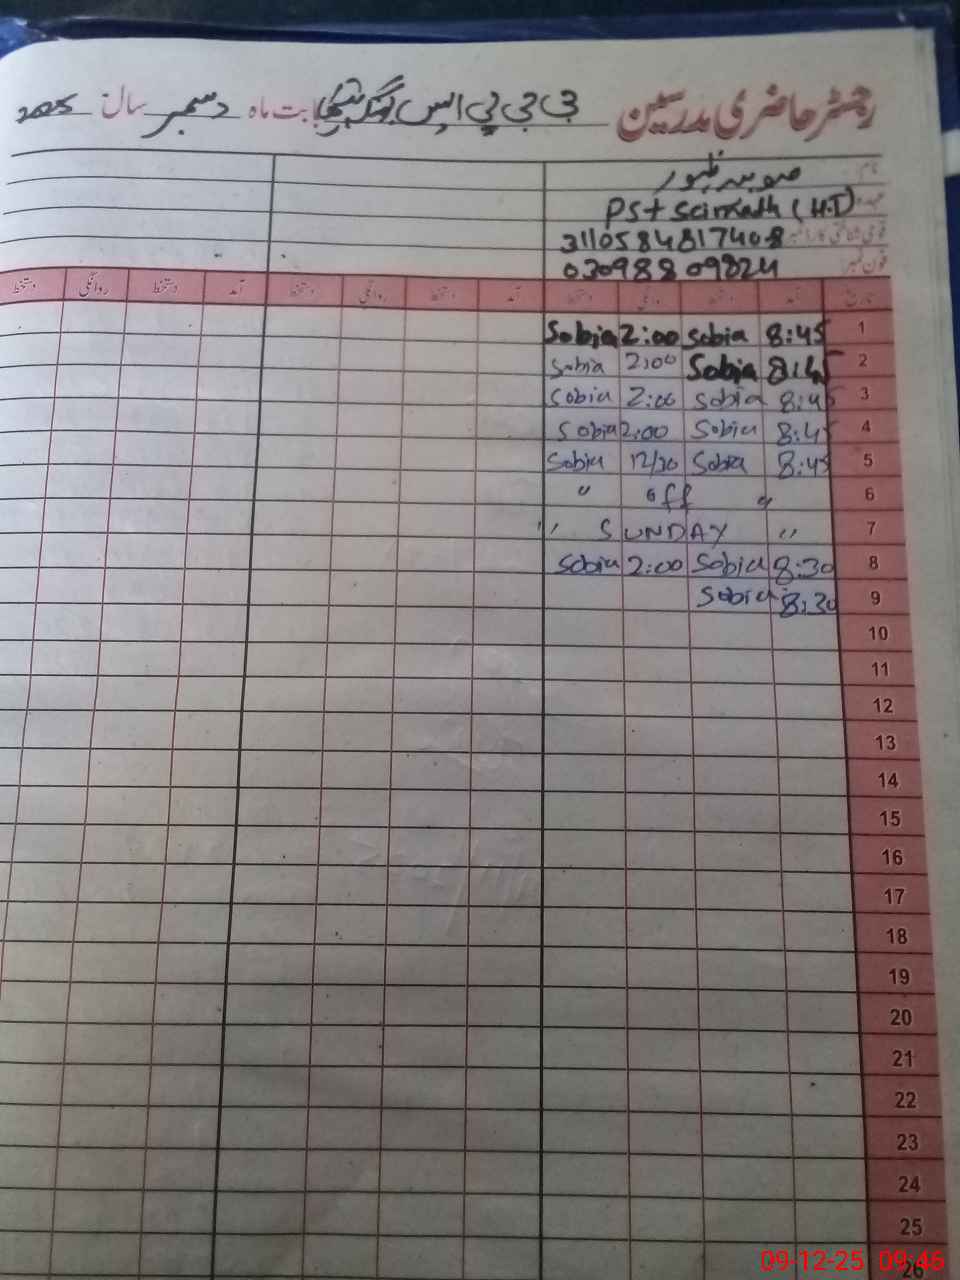 رجسٹر حاضری مدرسین جی جی پی ایس بابت ماہ دسمبر سال 2025
نام صوبیہ ظہور
عہدہ PST Sci math (H.T)
قومی شناختی کارڈ نمبر 3110584817408
فون نمبر 03098809824
تاریخ آمد دستخط روانگی دستخط آمد دستخط روانگی دستخط آمد دستخط روانگی دستخط
1 8:45 Sobia 2:00 Sobia
2 8:45 Sobia 2:00 Sobia
3 8:45 Sobia 2:00 Sobia
4 8:45 Sobia 2:00 Sobia
5 8:45 Sobia 12/30 Sobia
6 " off "
7 " SUNDAY "
8 8:30 Sobia 2:00 Sobia
9 8:30 Sobia
10
11
12
13
14
15
16
17
18
19
20
21
22
23
24
25
26
09-12-25 09:46